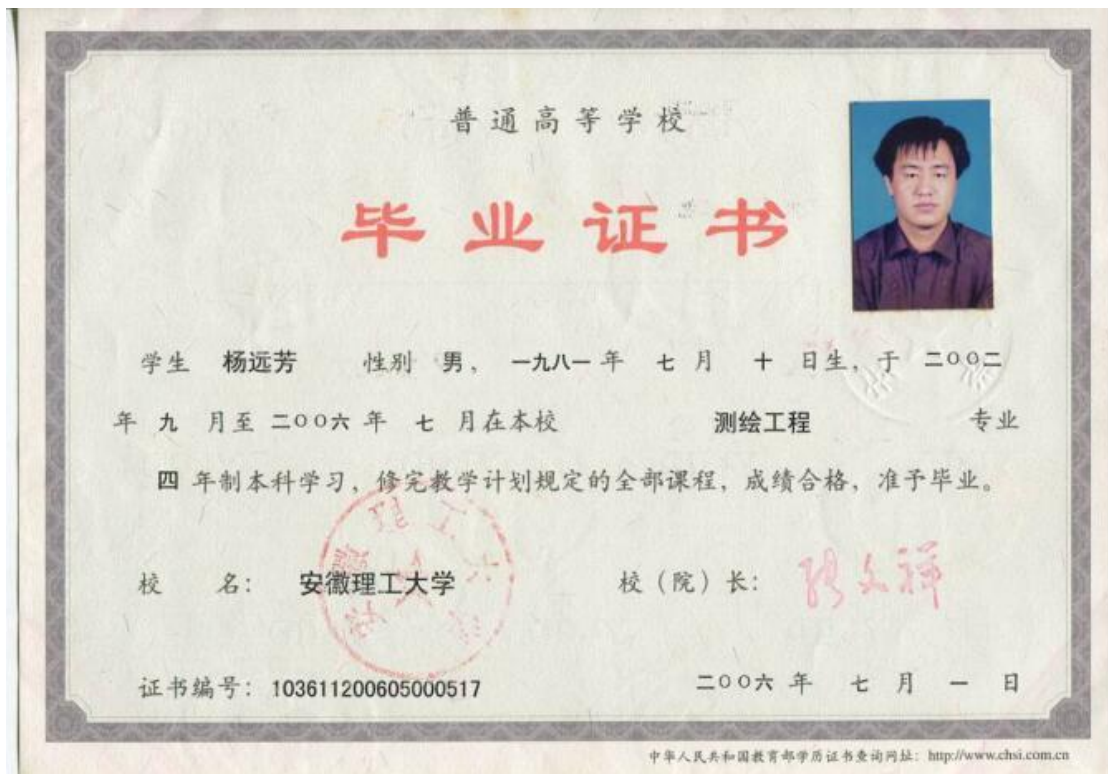 普通高等学校
毕业证书
学生 杨远芳 性别 男， 一九八一 年 七 月 十 日生，于 二〇〇二
年 九 月至 二〇〇六 年 七 月在本校 测绘工程 专业
四 年制本科学习，修完教学计划规定的全部课程，成绩合格，准予毕业。
校 名： 安徽理工大学 校（院）长： 张文祥
安徽理工大学
证书编号：103611200605000517 二〇〇六 年 七 月 一 日
中华人民共和国教育部学历证书查询网址：http://www.chsi.com.cn